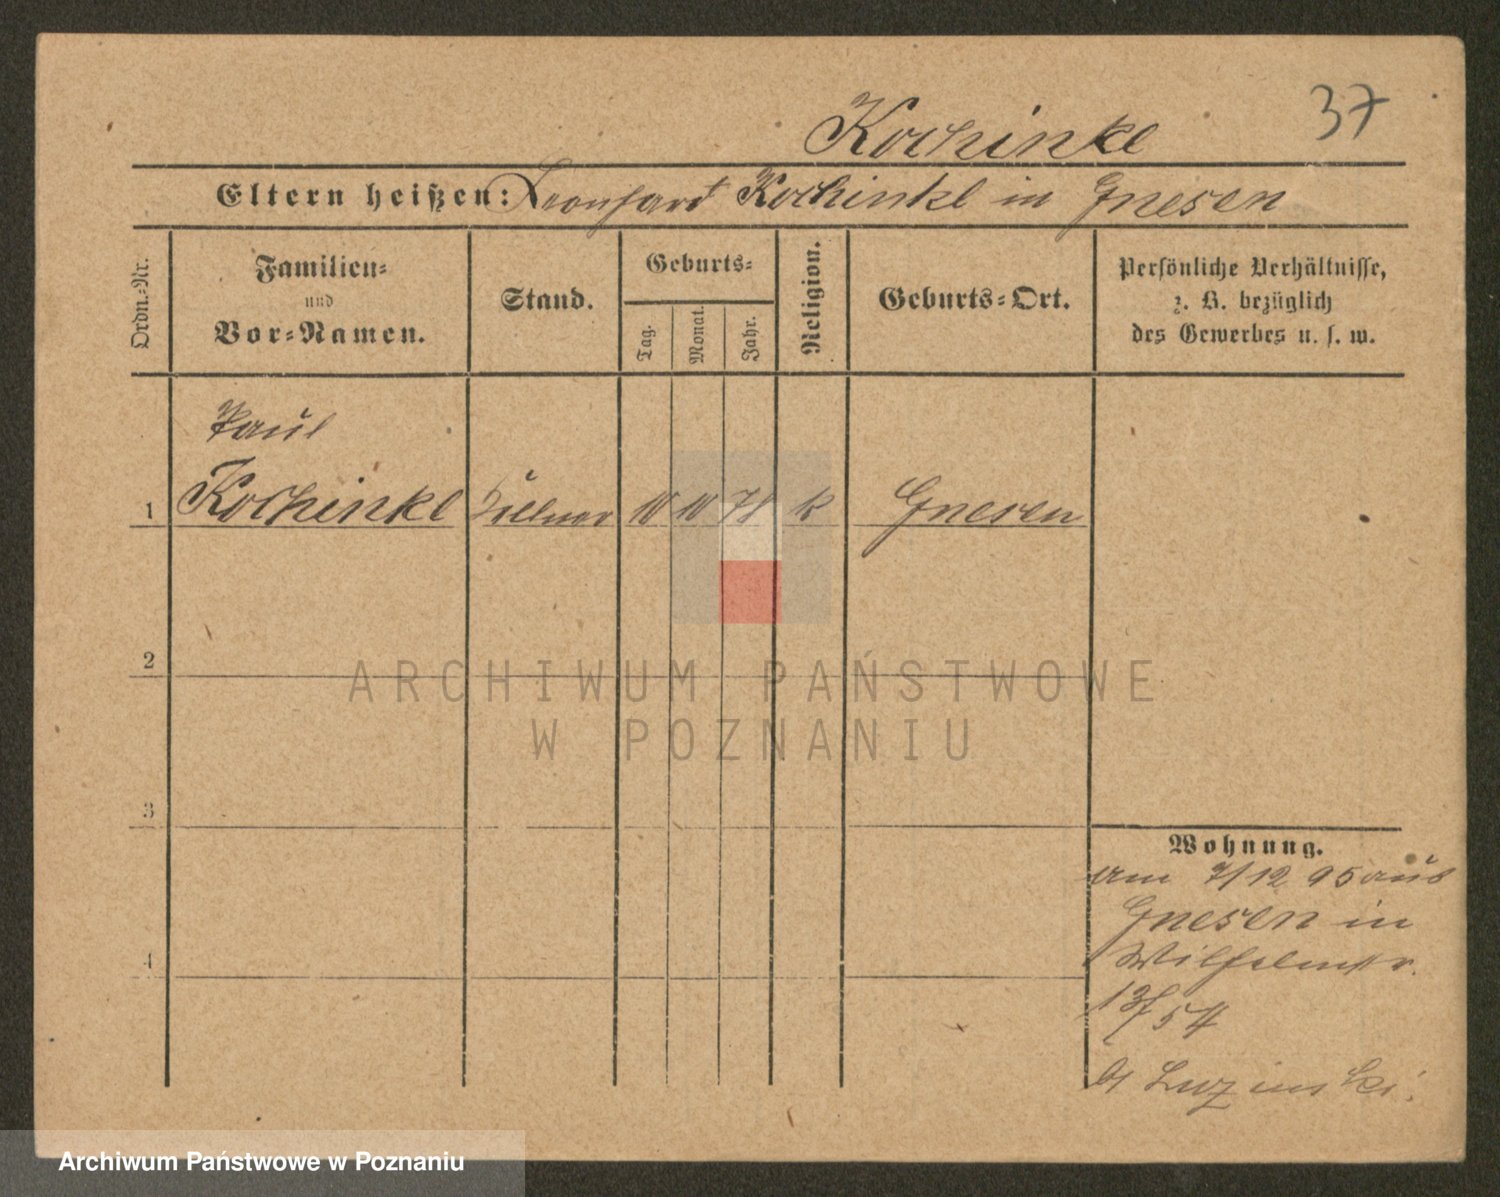 37
Kochinke
Eltern heißen: Leonhard Kochinke in Gnesen
Ordn.-Nr.
Familien-
und
Vor-Namen.
Stand.
Geburts-
Tag.
Monat.
Jahr.
Religion.
Geburts-Ort.
Persönliche Verhältnisse,
z. B. bezüglich
des Gewerbes u. s. w.
Paul
1 Kochinke Kellner k Gnesen
2
3
4
Wohnung.
am 7/12 95 aus
Gnesen in
Wilhelmstr.
13/
ARCHIWUM PAŃSTWOWE
W POZNANIU
Archiwum Państwowe w Poznaniu